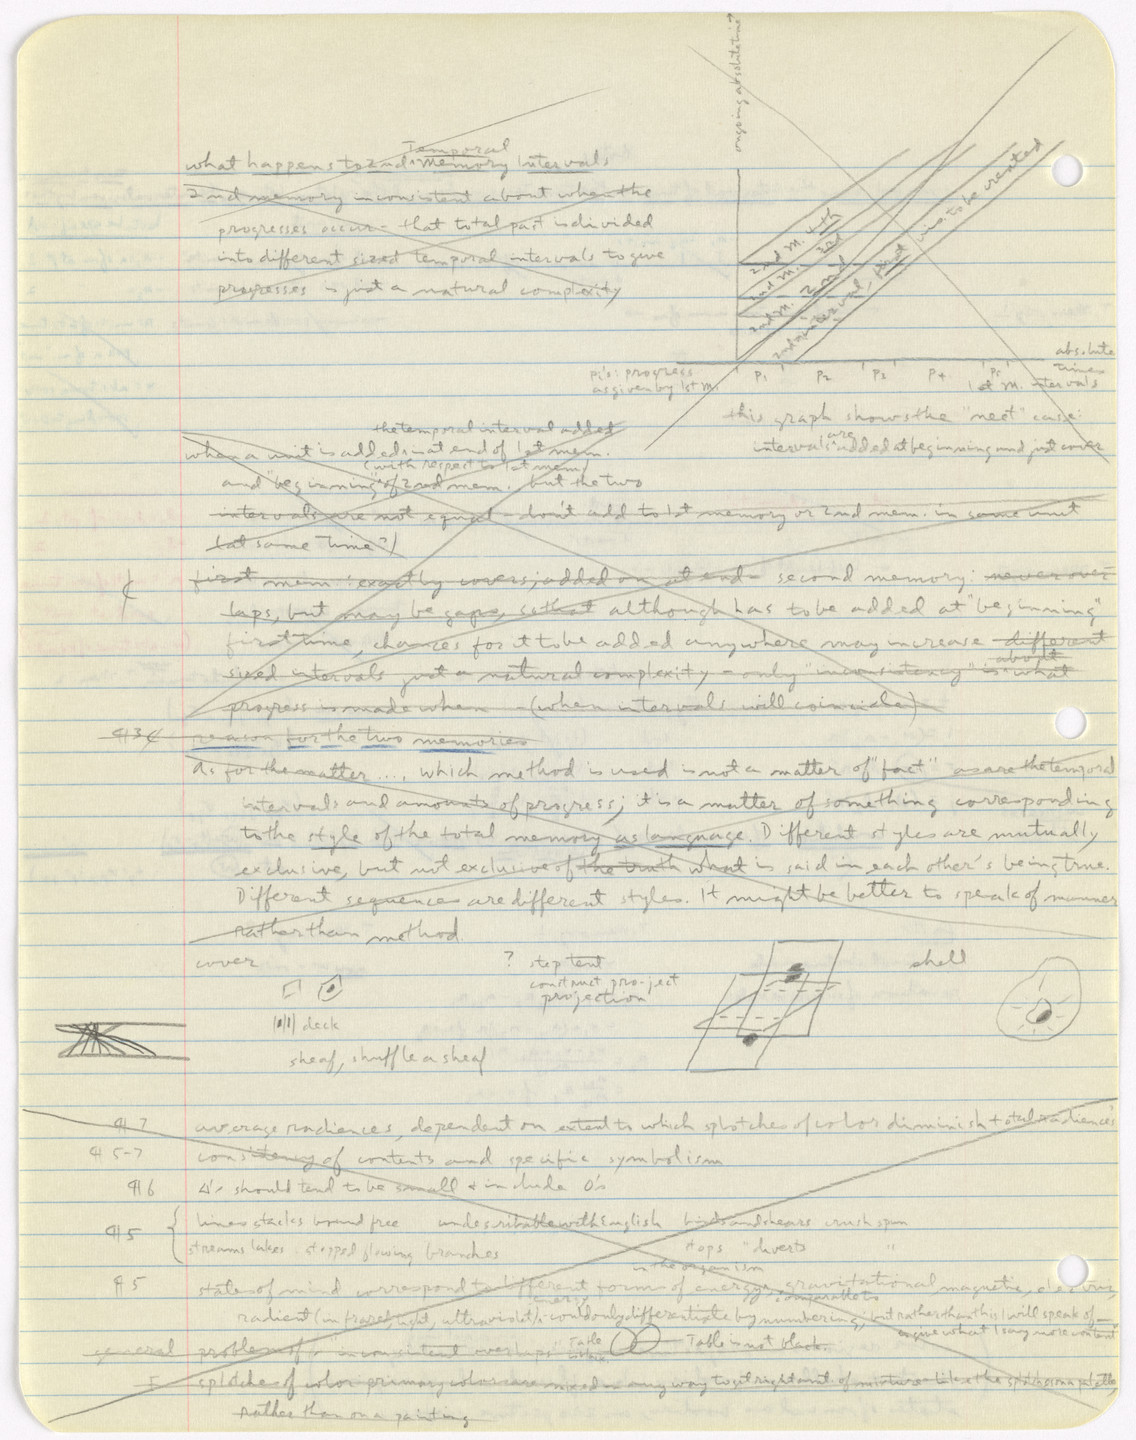 ongoing absolute time
Temporal
what happens to 2nd memory intervals
2nd memory inconsistent about when the
progresses occur - that total past is divided
into different sized temporal intervals to give
progresses is just a natural complexity
2nd M. 4th
2nd M. 3rd
2nd M. 2nd
2nd M. interval, first inc. to be created
absolute
times
Pi's: progress
as given by 1st M.
P1 P2 P3 P4 P5
1st M. intervals
this graph shows the "neat" case:
intervals are added at beginning and just cover
the temporal interval added
when a unit is added at end of 1st mem.
(with respect to 1st mem)
and "beginning" of 2nd mem. but the two
intervals are not equal - don't add to 1st memory or 2nd mem. in same unit
(at same "time"?)
¢ first mem: exactly covers; added on at end - second memory: never over-
laps, but may be gaps, so that although has to be added at "beginning"
first time, chances for it to be added anywhere may increase different
sized intervals just a natural complexity - only "inconsistency" is about what
progress is made when - (when intervals will coincide)
¶3¢ reason for the two memories
As for the matter ..., which method is used is not a matter of "fact" as are the temporal
intervals and amounts of progress; it is a matter of something corresponding
to the style of the total memory as language. Different styles are mutually
exclusive, but not exclusive of the truth what is said in each other's being true.
Different sequences are different styles. It might be better to speak of manner
rather than method.
cover
? step tent
construct pro-ject
projection
shell
deck
sheaf, shuffle a sheaf
¶7 average radiences, dependent on extent to which splotches of color diminish total radiences
¶5-7 consistency of contents and specific symbolism
¶6 Δ's should tend to be small & include 0's
¶5 lines stacks bound free undescribable with English birds and shears crush spun
streams lakes stopped flowing branches stops "diverts "
in the organism
¶5 states of mind correspond to different forms of energy, gravitational magnetic, electric,
energy
radient (infrared, light, ultraviolet) could only differentiate by numbering; but rather than this I will speak of
give what I say more content
general problem of "inconsistent overlaps" Table is black. Table is not black.
5 splotches of color primary colors are mixed in any way to get right amt. of mixture like the splotches on a palette,
rather than on a painting